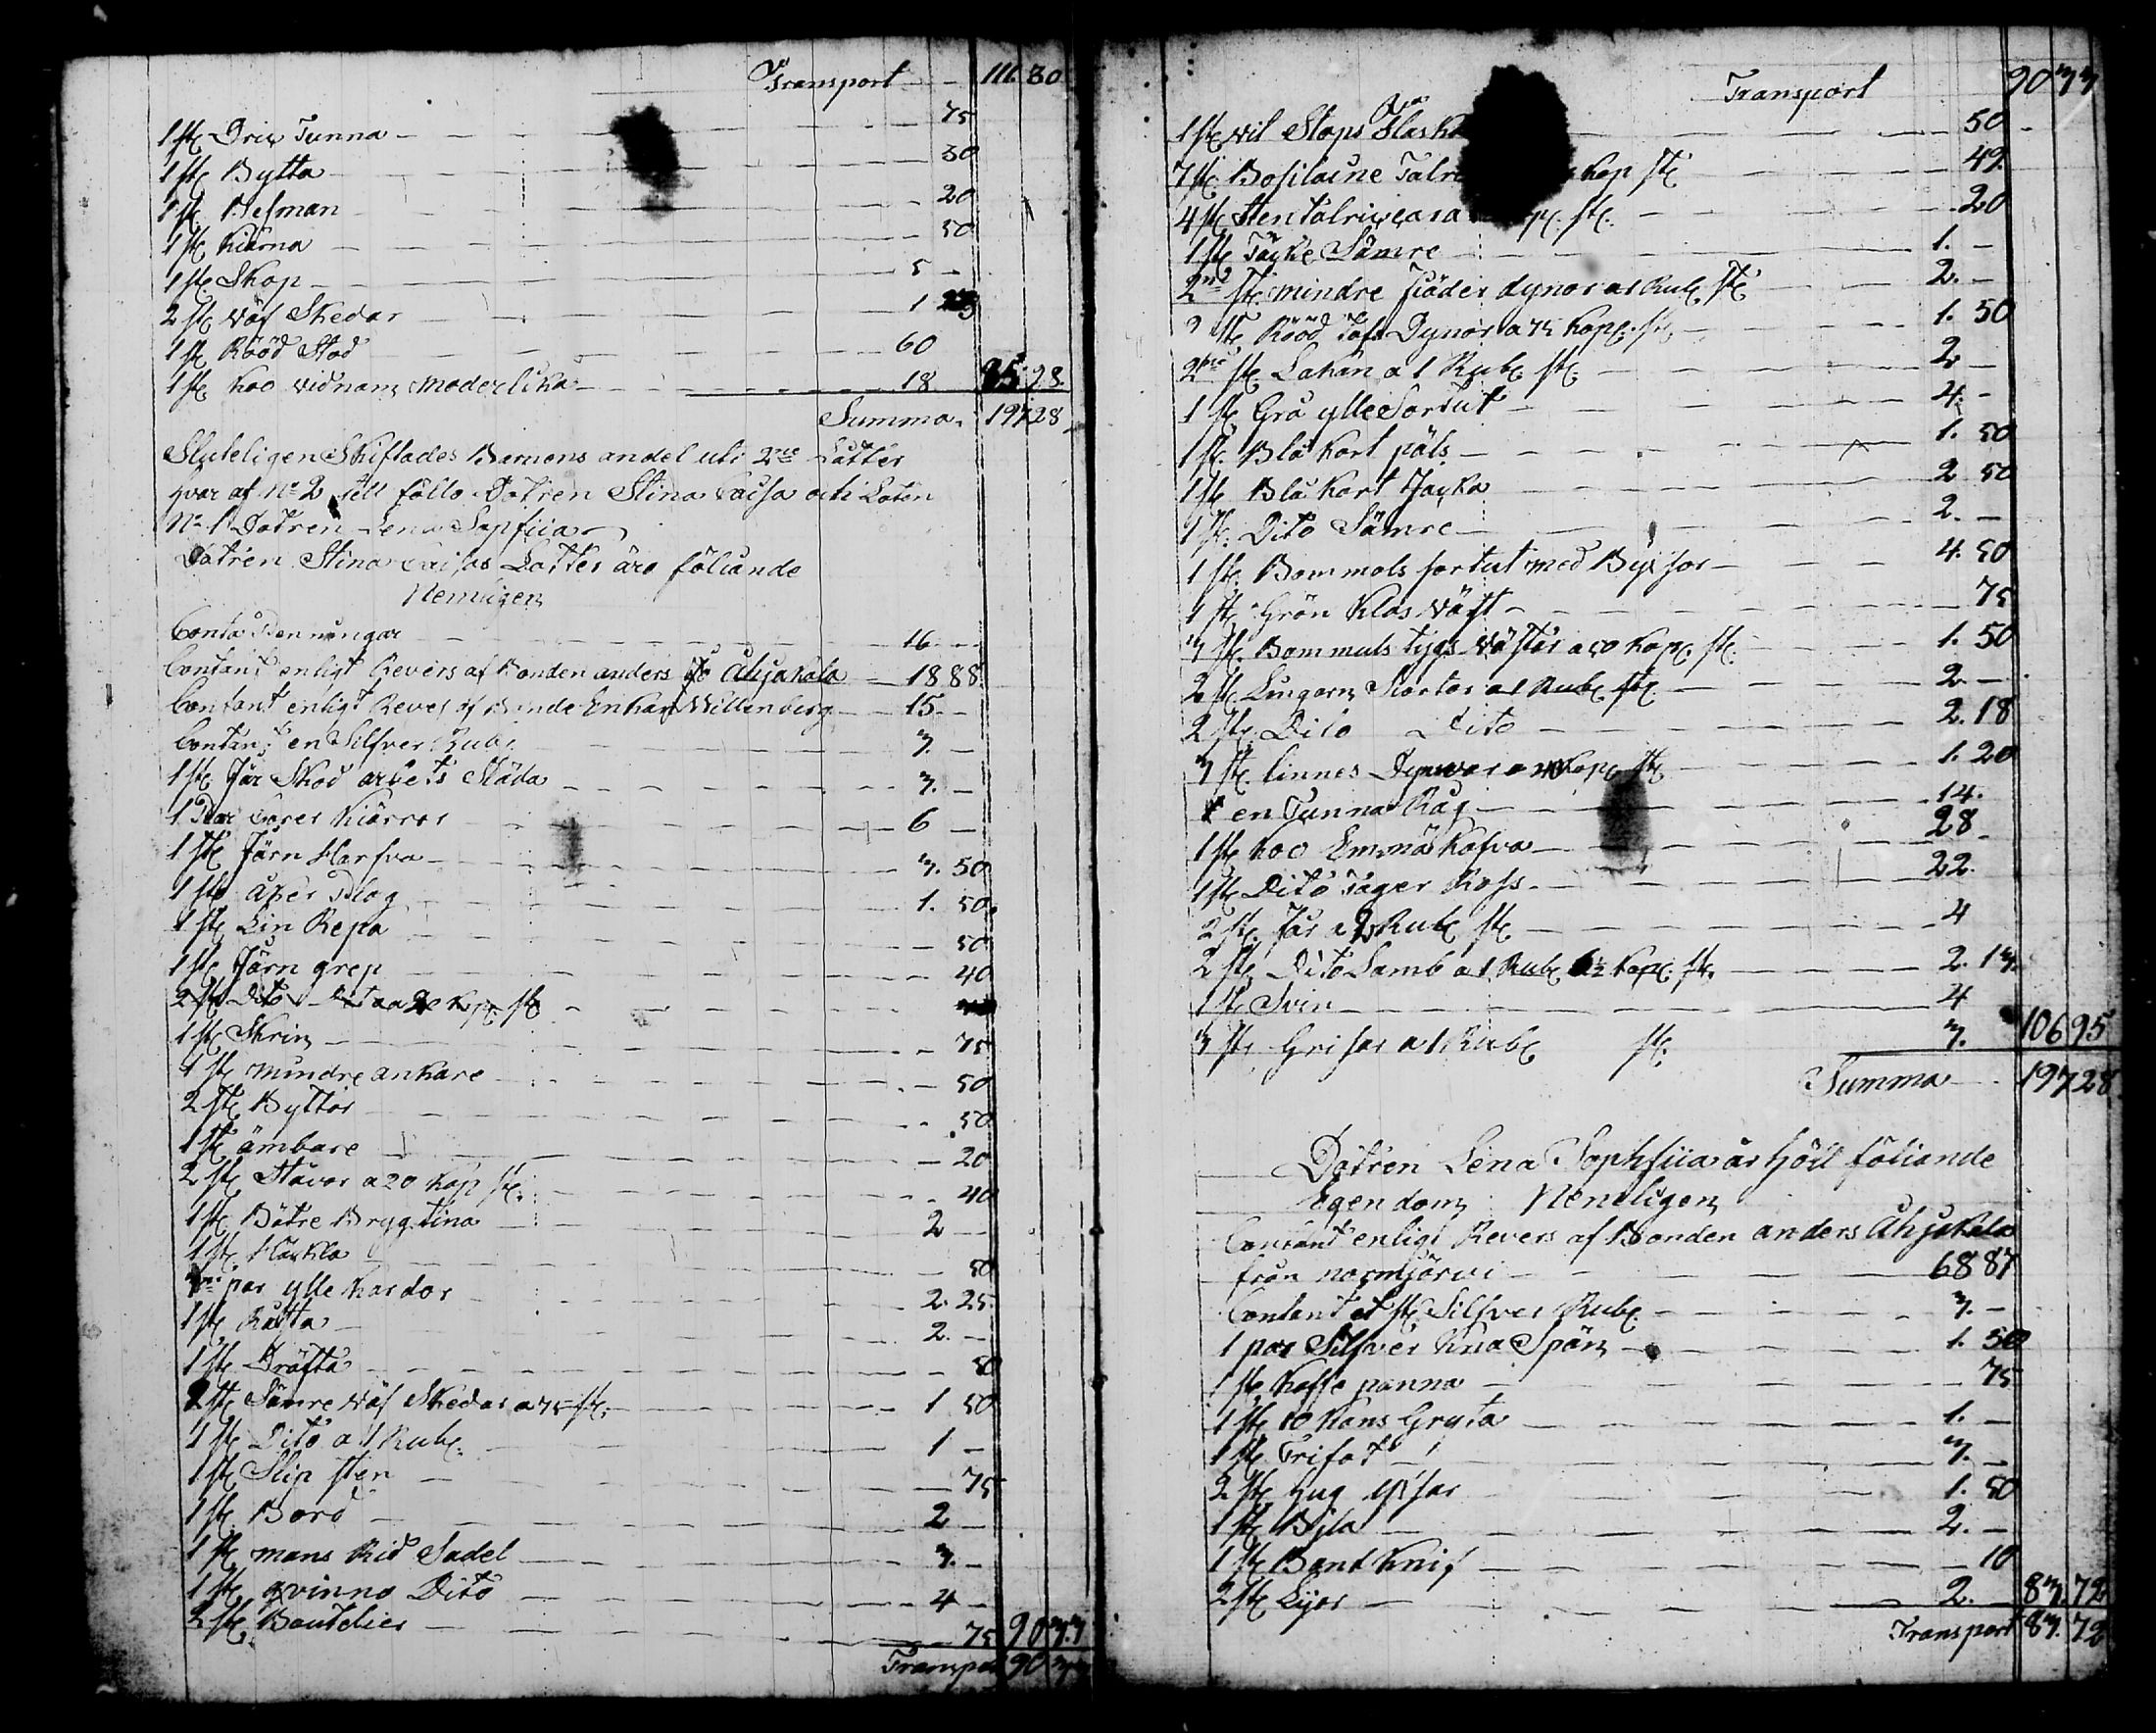 Transport - 111. 80
1 st. Drix Tunna - 75
1 st. Bytta - 30
1 st. Besman - 20
1 st. Kiärna - 50
1 st. Skop - 5 -
2 st. Väf Skedar - 1
1 st. Rööd Stod - 60
1 st. Koo vidnam Moderlika - 18 85. 98
Summa. 197 28
Sluteligen Skiftades Barnens andel uti 2ne Låtter
hvar af No 2 till föllo Dotren Stina Caisa och Loten
No 1 Dotren Lena Sopfiia
Dotren Stina Caisas Lotter äro föliande
Nemligen
Conta Penningar - 16 - -
Contant enligt Revers af Bonden anders Ahjakala - 18 88
Contant enligt Revers af Bonde Enkan Willenberg - 15 - -
Contant en Silfver Rub. - 3. -
1 st. Jär Skod arbets Släda - 3. -
1 Par Kiärror - 6 -
1 st. Järn Harfva - 3. 50
1 st. åker Plog - 1. 50
1 st. Lin Repa - 50
1 st. Järn grep - 40
2 st. Dito Dito a 20 kop. st.
1 st. Skrin - 75
1 st. mindre ankare - 50
2 st. Byttor - 50
1 st. ämbare - 20
2 st. Stavar a 20 Kop st. - 40
1 st. Bätre Brygtina - 2 -
1 st. Häckla - 50
par ylle Kardor - 2. 25
1 st. Rätta - 2. -
1 st. - 50
2 st. Sämre Väf Skedar a 75 st. - 1 50
1 st. Dito a 1 Rub. - 1 -
1 st. Slip sten - 75
1 st. Bord - 2 -
1 st. mans Rid Sadel - 3. -
1 st. qvinno Dito - 4 -
2 st. Boutelier - 75 90 33
Transport 90 33
Transport 90 33
1 st. vil Stops Flaska - 50
7 st. Bosilaine Kop st. - 49
4 st. Sten st. - 20
1 st. Täcke Sämre - 1. -
2ne st. mindre Fiöder dynor a 1 Rub. st. - 2. -
st. Rööd Dynor a 75 Kop. st. - 1. 50
2ne st. Lakan a 1 Rub. st. - 2 -
1 st. Grå ylle Sortut - 4. -
1 st. Blå Kort päls - 1. 50
1 st. Blå Kort Tjacka - 2 50
1 st. Dito Sämre - 2. -
1 st. Bommols sortut med Byxsor - 4. 50
1 st. Grön Kläs Väst - 75
3 st. Bommuls tygs Väster a 50 Kop. st. - 1. 50
2 st. Lingarn Skortor a 1 Rub. st. - 2 -
2 st. Dito Dito - 2. 18
3 st. linnes Dynvar a 40 Kop. st. - 1. 20
en Tunna Råg - 14.
1 st. Koo Emmäkafva - 28 -
1 st. Dito Täger Koss - 22.
2 st. Får a 2 Rub. st. - 4
2 st. Dito Lamb a 1 Rub. 6½ Kop. st. - 2. 13.
1 st. Svin - 4
3 st. Grisar a 1 Rub. st. - 3. 106 95
Summa - 197 28
Dotren Lena Sophfiia är höll föliande
Egendom Nemligen
Contant enligt Revers af Bonden anders Ahjakala
från normjärwi - 68 87
Contant et st. Silfver Rub. - 3. -
1 par Silfver Knä Spän - 1. 50
1 st. Kaffe panna - 75
1 st. 10 Kans Gryta - 1. -
1 st. Trifot - 3. -
2 st. Hug - 1. 50
1 st. Bila - 2. -
1 st. Bant Knif - 10
2 st. Lijor - 2. - 83. 72
Transport 83. 72